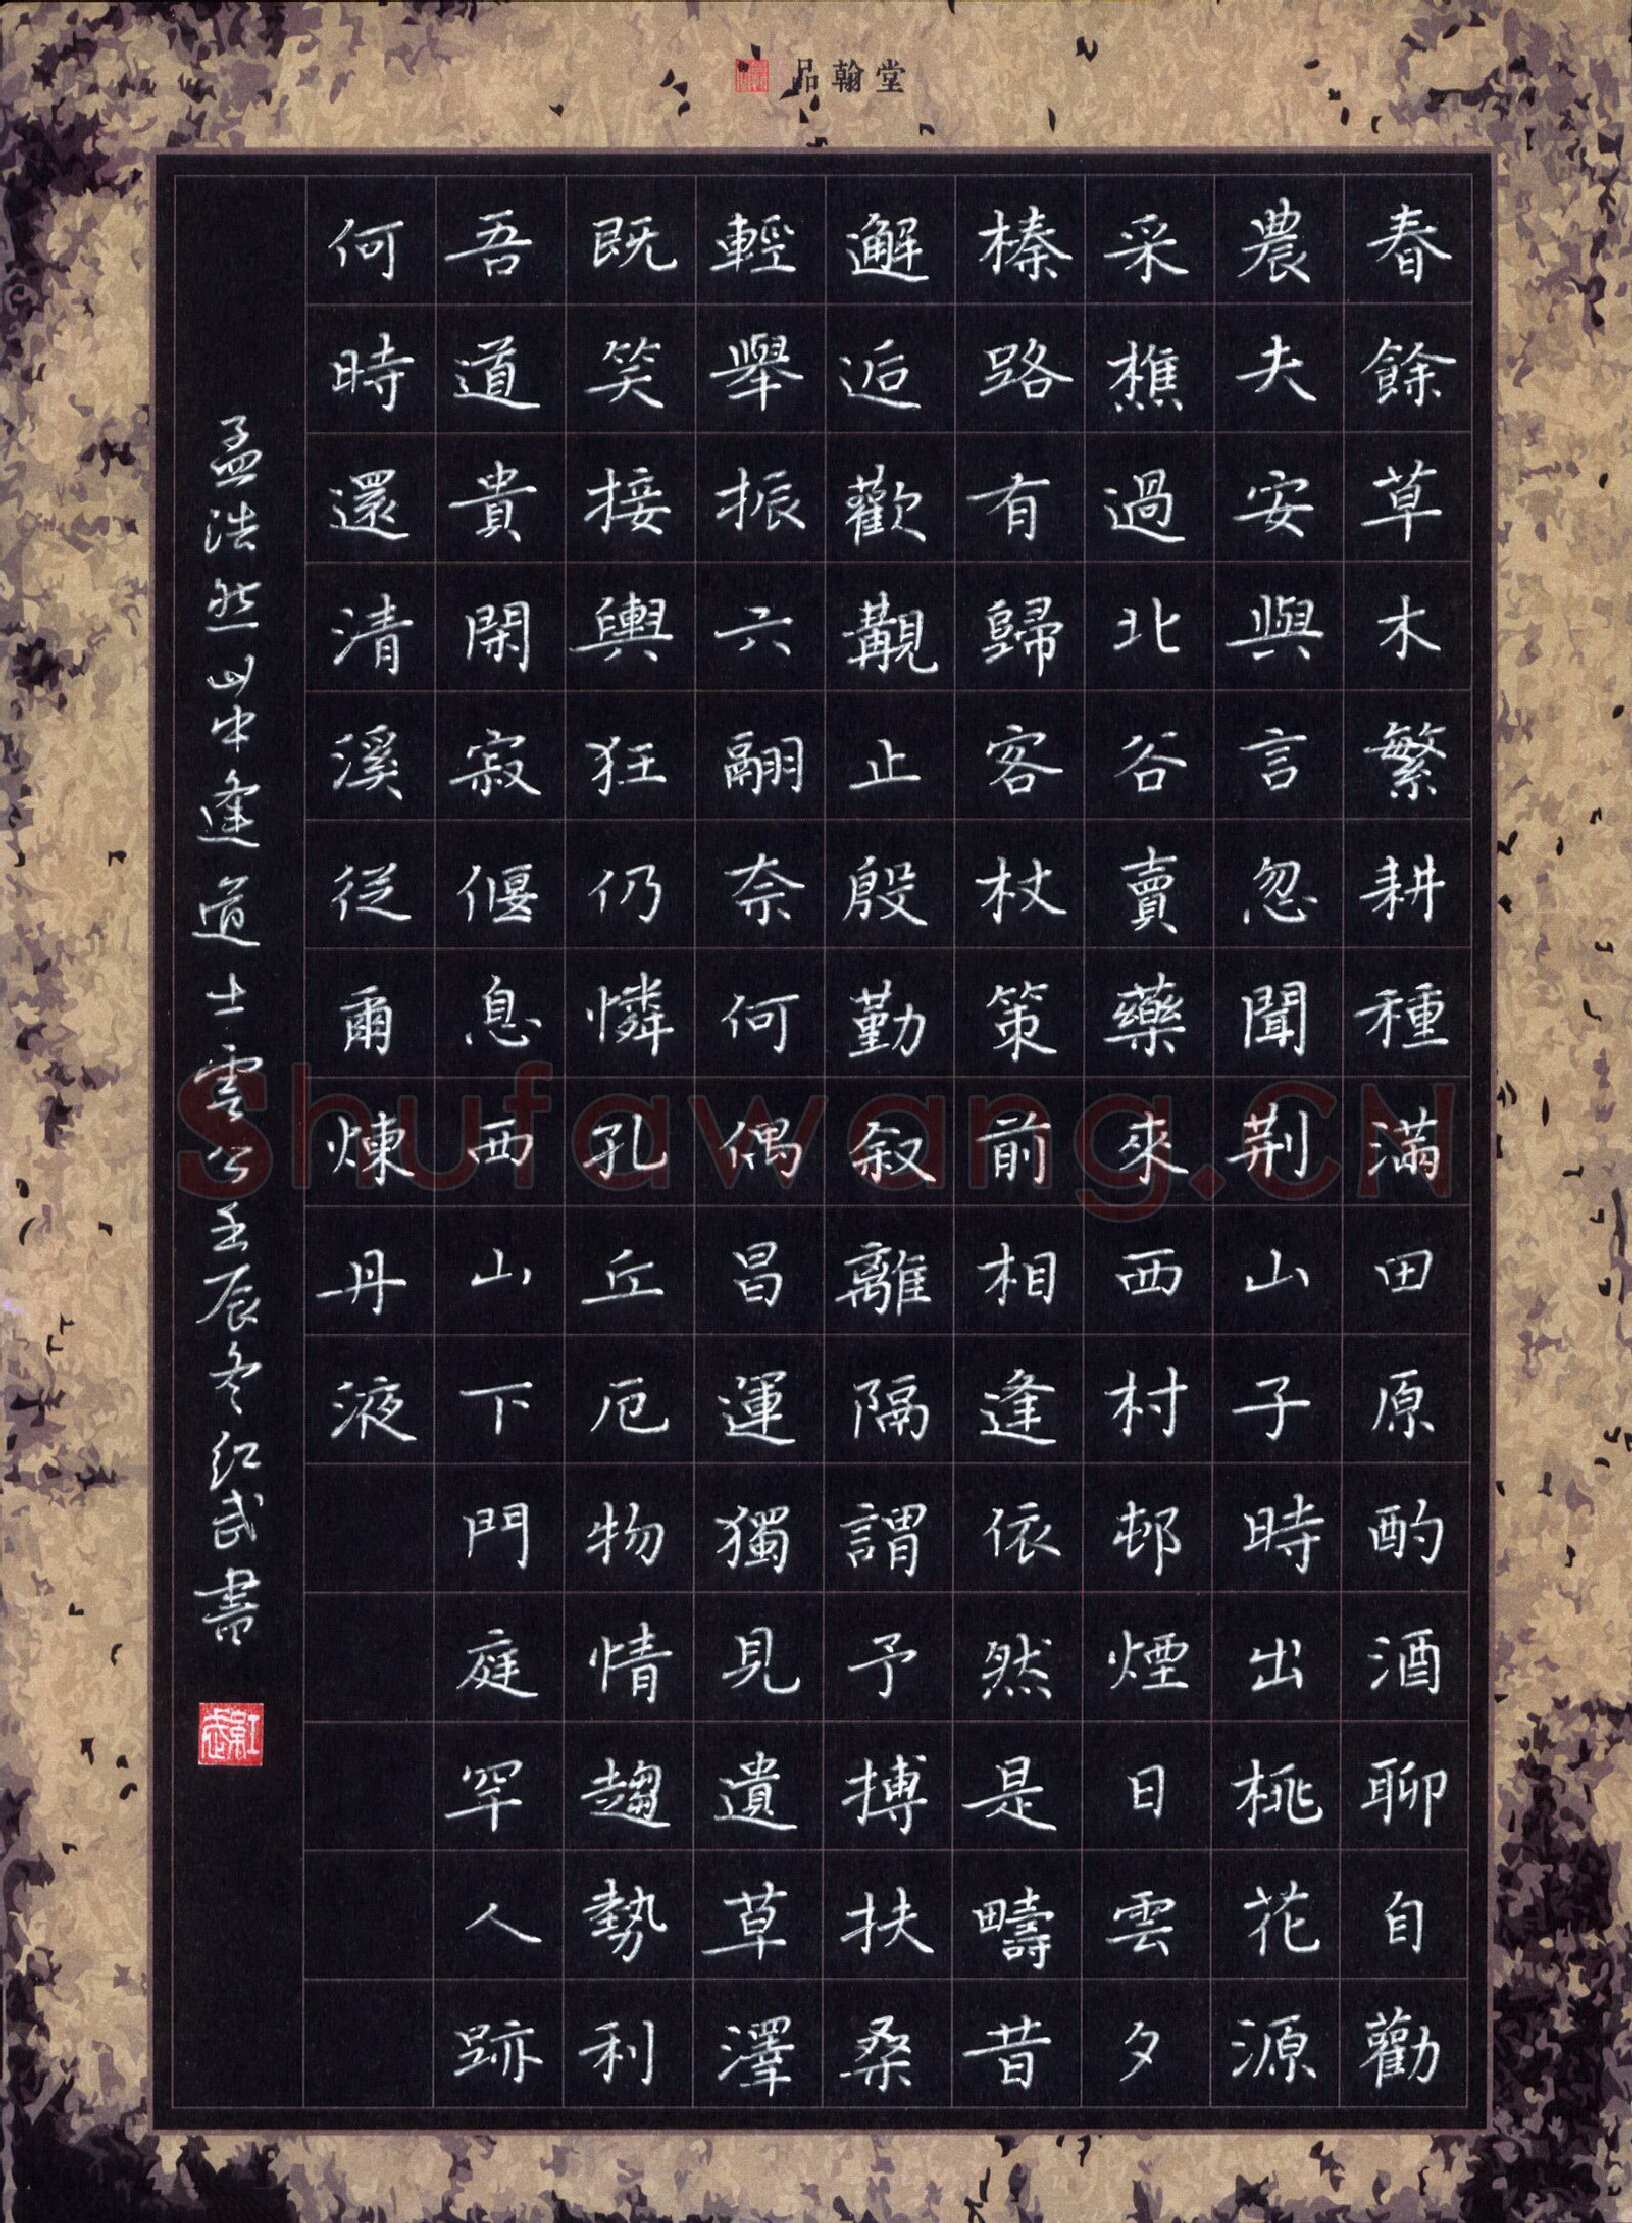 品翰堂
春餘草木繁耕種滿田原酌酒聊自勸
農夫安與言忽聞荆山子時出桃花源
采樵過北谷賣藥來西村村煙日雲夕
榛路有歸客杖策前相逢依然是疇昔
邂逅歡覯止殷勤叙離隔謂予摶扶桑
輕舉振六翮奈何偶昌運獨見遺草澤
既笑接輿狂仍憐孔丘厄物情趨勢利
吾道貴閑寂偃息西山下門庭罕人跡
何時還清溪從爾煉丹液
孟浩然山中逢道士雲公壬辰冬紅武書
紅武
Shufawang.CN